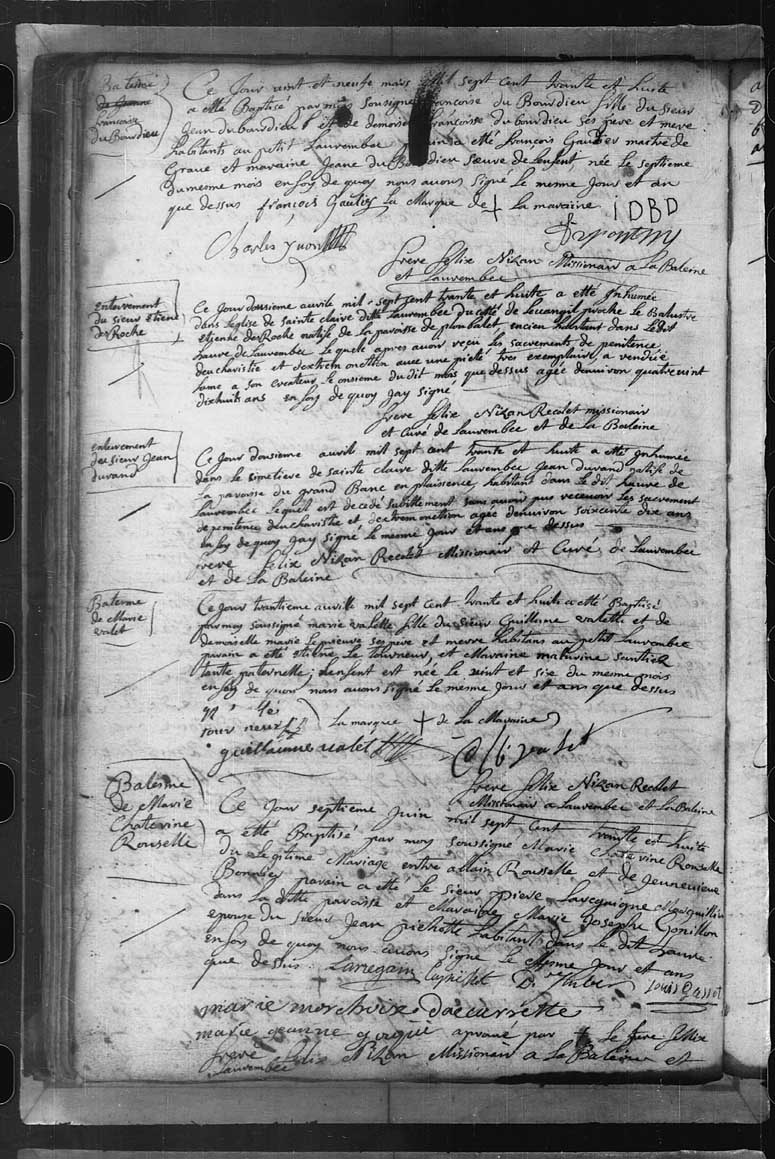 Bateme
de Jeanne
francoise
du Bourdieu
Ce Jour vint et neufe mars mil sept cent trante et huite
a etté Baptisé par moy sousigné francoise du Bourdieu fille du sieur
Jean du bourdieu et de demoiselle francoisse du bourdieu ses pere et mere
habitants au petit Laurembec parain a etté francois Gautier maitre de
Grave et maraine Jeane du Bourdieu seuve de Lenfent née Le septieme
du mesme mois en foy de quoy nous avons signé Le meme Jour et an
que dessus francois Gautier La Marque de + La maraine IDBD
Charles yvon
frere felix Nizan Missionair a La Baleine
et Laurembec
Enterrement
du sieur Etiene
des Roche
Ce Jour dousieme avrile mil sept sent trante et huite a etté Jnhumée
dans Leglise de sainte claire ditte Laurembec du côté de Levangil proche Le Balustre
etienne des Roche natife de La paroisse de ploubalet encien habitant dans Ledit
havre de Laurembec Le quele apres avoir reçu Les sacrements de penitence,
deucharistie et dextrem onction avec une pieté tres exemplaire, a rendüe
Lame a son Createur Le onsieme du dit mois que dessus agée denviron quatrevint
dixhuits ans en foy de quoy Jay signé
frere felix Nizan Recolet missionair
et Curé de Laurembec et de La Baleine
enterrement
du sieur Jean
durand
Ce Jour dousieme avril mil sept cent trante et huite a etté Jnhumée
dans Le simetiere de sainte claire ditte Laurembec Jean durand natife de
La paroisse du grand Banc en plaissence, habitant dans Le dit havre de
Laurembec Lequel est decedé subittement sans avoir pus recevoir Les sacrement
de penitence deucharistie et dextrem onction agée denviron soixcente dix ans
En foy de quoy Jay signé Le meme Jour et ans que dessus
frere felix Nizan Recolet Missionair et Curé, de Laurembec
et de La Baleine
Bateme
de Marie
valet
Ce Jour trantieme avrille mil sept Cent trante et huite a etté Baptisé
par moy soussigné marie valette fille du sieur Guillome valette et de
demoiselle marie Leprieure ses pere et merre habitans au petit Laurembec
parain a etté etienne Le tourneur, et Maraine maturine
tante paternelle, Lenfent est née Le vint et sixe du mesme mois
en foy de quoy nous avons signé Le mesme Jour et ans que dessus
La marque + de La Maraine
guillaumme valet
frere felix Nizan Recolet
Missionair a Laurembec et La Baleine
Bateme
de Marie
Chaterine
Rouselle
Ce Jour septieme Juin mil sept cent trantte et huite
a etté Baptisé par moy soussigne Marie Chaterine Rouselle
du Legitime Mariage entre allain Rousselle et de Jeunevieue
Bonnier parain a etté Le sieur piere Larquigne Marguillier
dans La ditte paroisse et Maraine Marie Joseph Gonillon
epouse du sieur Jean pichotte habitants dans Le dit havre
en foy de quoy nous avons signe Le Mesme Jour et ans
que dessus. Larregain
marie morchoixe daccarrette
marie jeanne aprouvé par + Le frere fellix
frere felix Nizan Missionair a La Baleine et
Laurembec